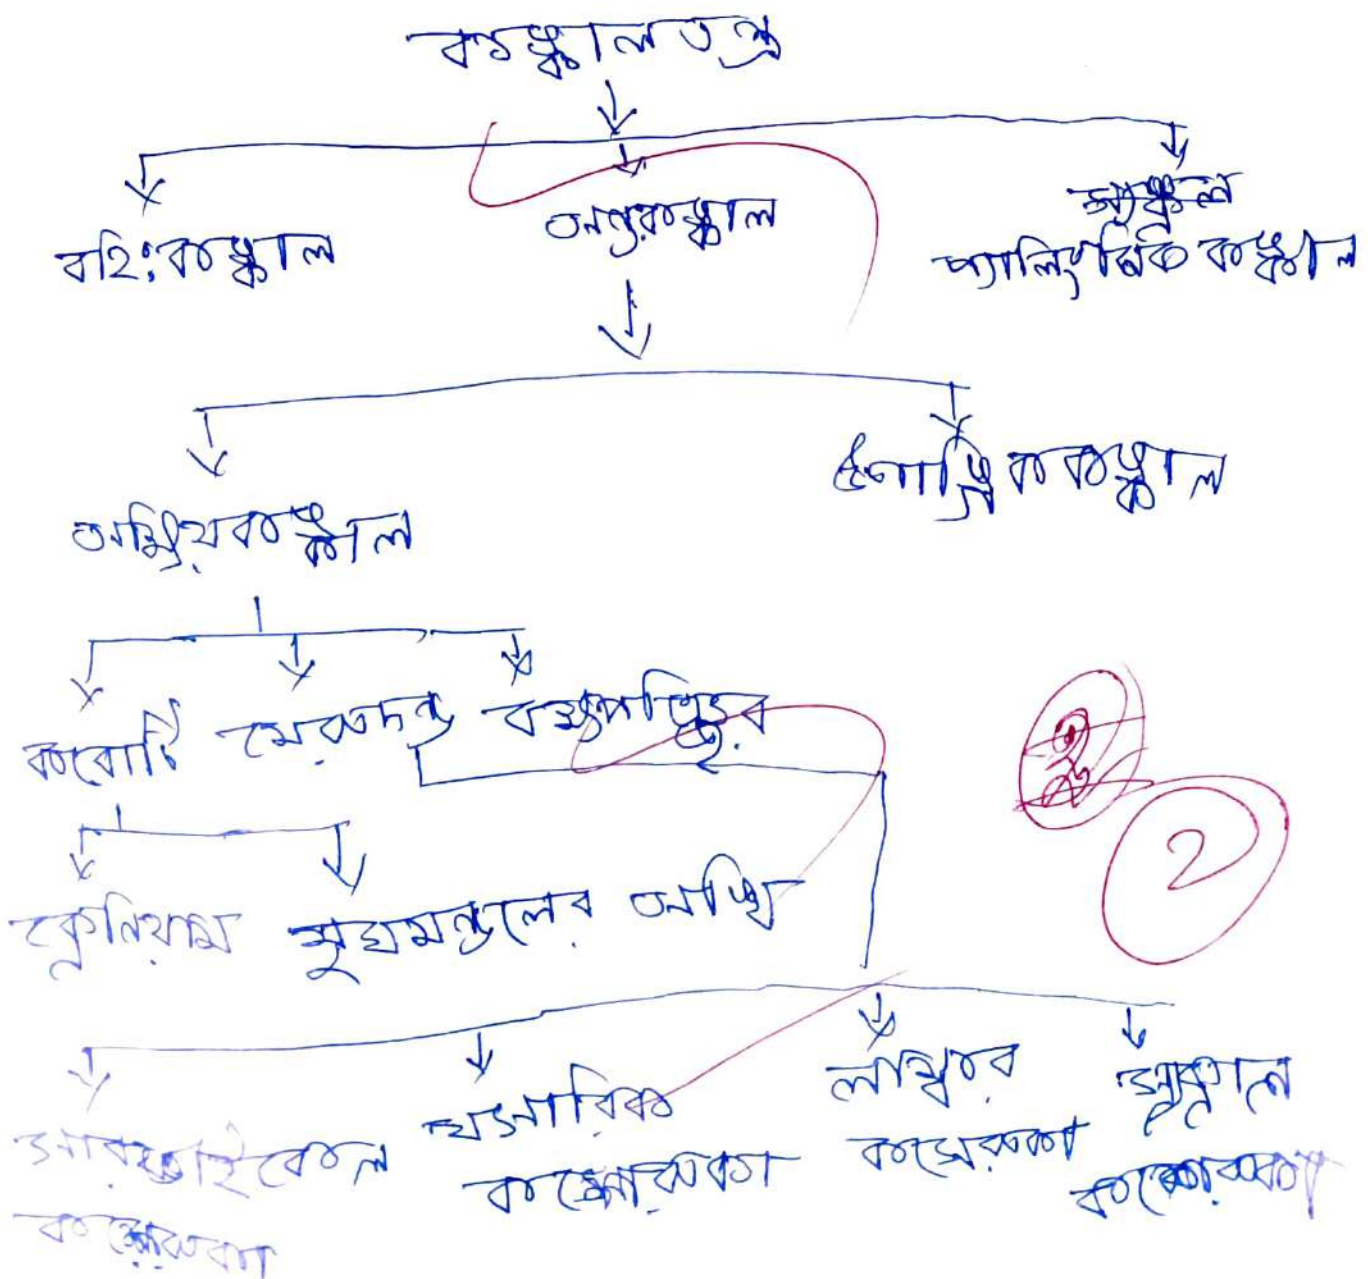 কঙ্কালতন্ত্র
বহিঃকঙ্কাল
অন্তঃকঙ্কাল
কঙ্কাল
অক্ষীয়কঙ্কাল
উপাঙ্গিক কঙ্কাল
করোটি মেরুদন্ড বক্ষপিঞ্জর
ক্রেনিয়াম মুখমন্ডলের অস্থি
2
সারভাইকাল
কশেরুকা
থোরাসিক
কশেরুকা
লাম্বার
কশেরুকা
স্যাক্রাল
কশেরুকা